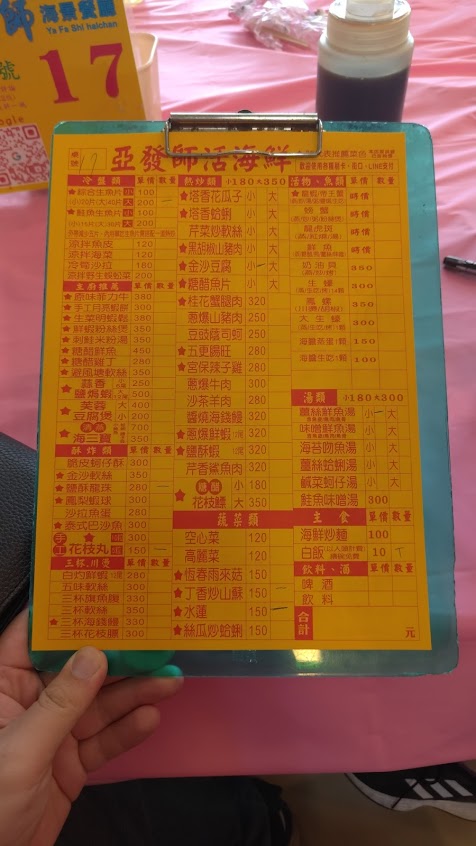 師 海景餐廳
Ya Fa Shi haichan
號
17
亞發師活海鮮
桌號 17
冷盤類 單價 數量
★綜合生魚片 小 100
大 200
★鮭魚生魚片 小 100
大 200
涼拌魚皮 120
涼拌海菜 120
冷筍沙拉 180
涼拌野生蜈蚣菜 200
主廚推薦 單價 數量
★原味菲力牛 380
★手工月亮蝦餅 300
★生菜明蝦鬆 380
★鮮蝦粉絲煲 350
★刺鮭米粉湯 350
★糖醋鮮魚 450
★糖醋雞丁 280
★避風塘軟絲 350
★蒜香
鹽焗蝦
★芙蓉 大 400
豆腐煲 小 200
★海三寶
酥炸類 單價 數量
脆皮蚵仔酥 300
★金沙軟絲 350
★鹽酥龍珠 280
★鳳梨蝦球 300
沙拉魚蛋 280
★泰式巴沙魚 300
手工 ★花枝丸 150
三杯.川燙 單價 數量
白灼鮮蝦
五味軟絲 300
三杯旗魚腹 330
三杯軟絲 350
★三杯海錢鰻 330
三杯花枝腰 300
熱炒類 小180大350
★塔香花瓜子 小 大
★塔香蛤蜊 小 大
芹菜炒軟絲 小 大
★黑胡椒山豬肉 小 大
★金沙豆腐 小 大
★糖醋魚片 小 大
★桂花蟹腿肉 320
蔥爆山豬肉 250
豆豉蔭司蚵 250
★五更腸旺 280
★宮保辣子雞 280
蔥爆牛肉 300
沙茶羊肉 280
醬燒海錢鰻 320
★蔥爆鮮蝦 320
★鹽酥蝦 320
芹香鯊魚肉 320
小 180
★花枝鰾 大 350
蔬菜類
空心菜 120
高麗菜 120
★恆春雨來菇 150
★丁香炒山蘇 150
★水蓮 150
★絲瓜炒蛤蜊 150
活物、魚類 單價 數量
時價
螃蟹 時價
龍虎斑 時價
鮮魚 時價
奶油貝 350
生蠔 300
鳳螺 350
大生蠔 300
海膽蒸蛋1顆 150
海膽生吃1顆 100
湯類 小180大300
薑絲鮮魚湯 小 大
味噌鮮魚湯 小 大
海苔吻魚湯 小 大
薑絲蛤蜊湯 小 大
鹹菜蚵仔湯 小 大
鮭魚味噌湯 300
主食 單價 數量
海鮮炒麵 100
白飯(以人頭計費) 10
飲料、酒 單價 數量
啤酒
飲料
合計 元